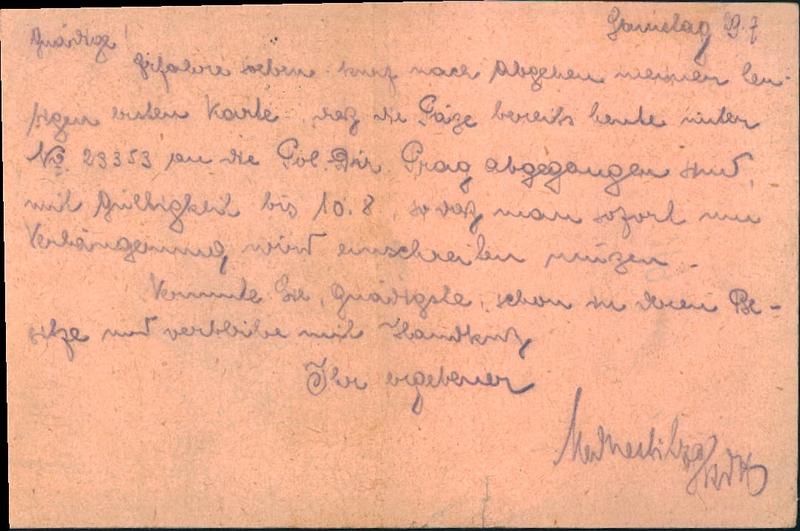 Samstag 29.7
Gnädige!
Erfahre soeben kurz nach Abgehen meiner heu-
tigen ersten Karte, daß die Päße bereits heute unter
No 23353 an die Pol. Dir. Prag abgegangen sind,
mit Gültigkeit bis 10.8, so daß man sofort um
Verlängerung wird einschreiten müßen.
Vermute Sie, Gnädigste, schon in deren Be-
sitze und verbleibe mit Handkuß
Ihr ergebener